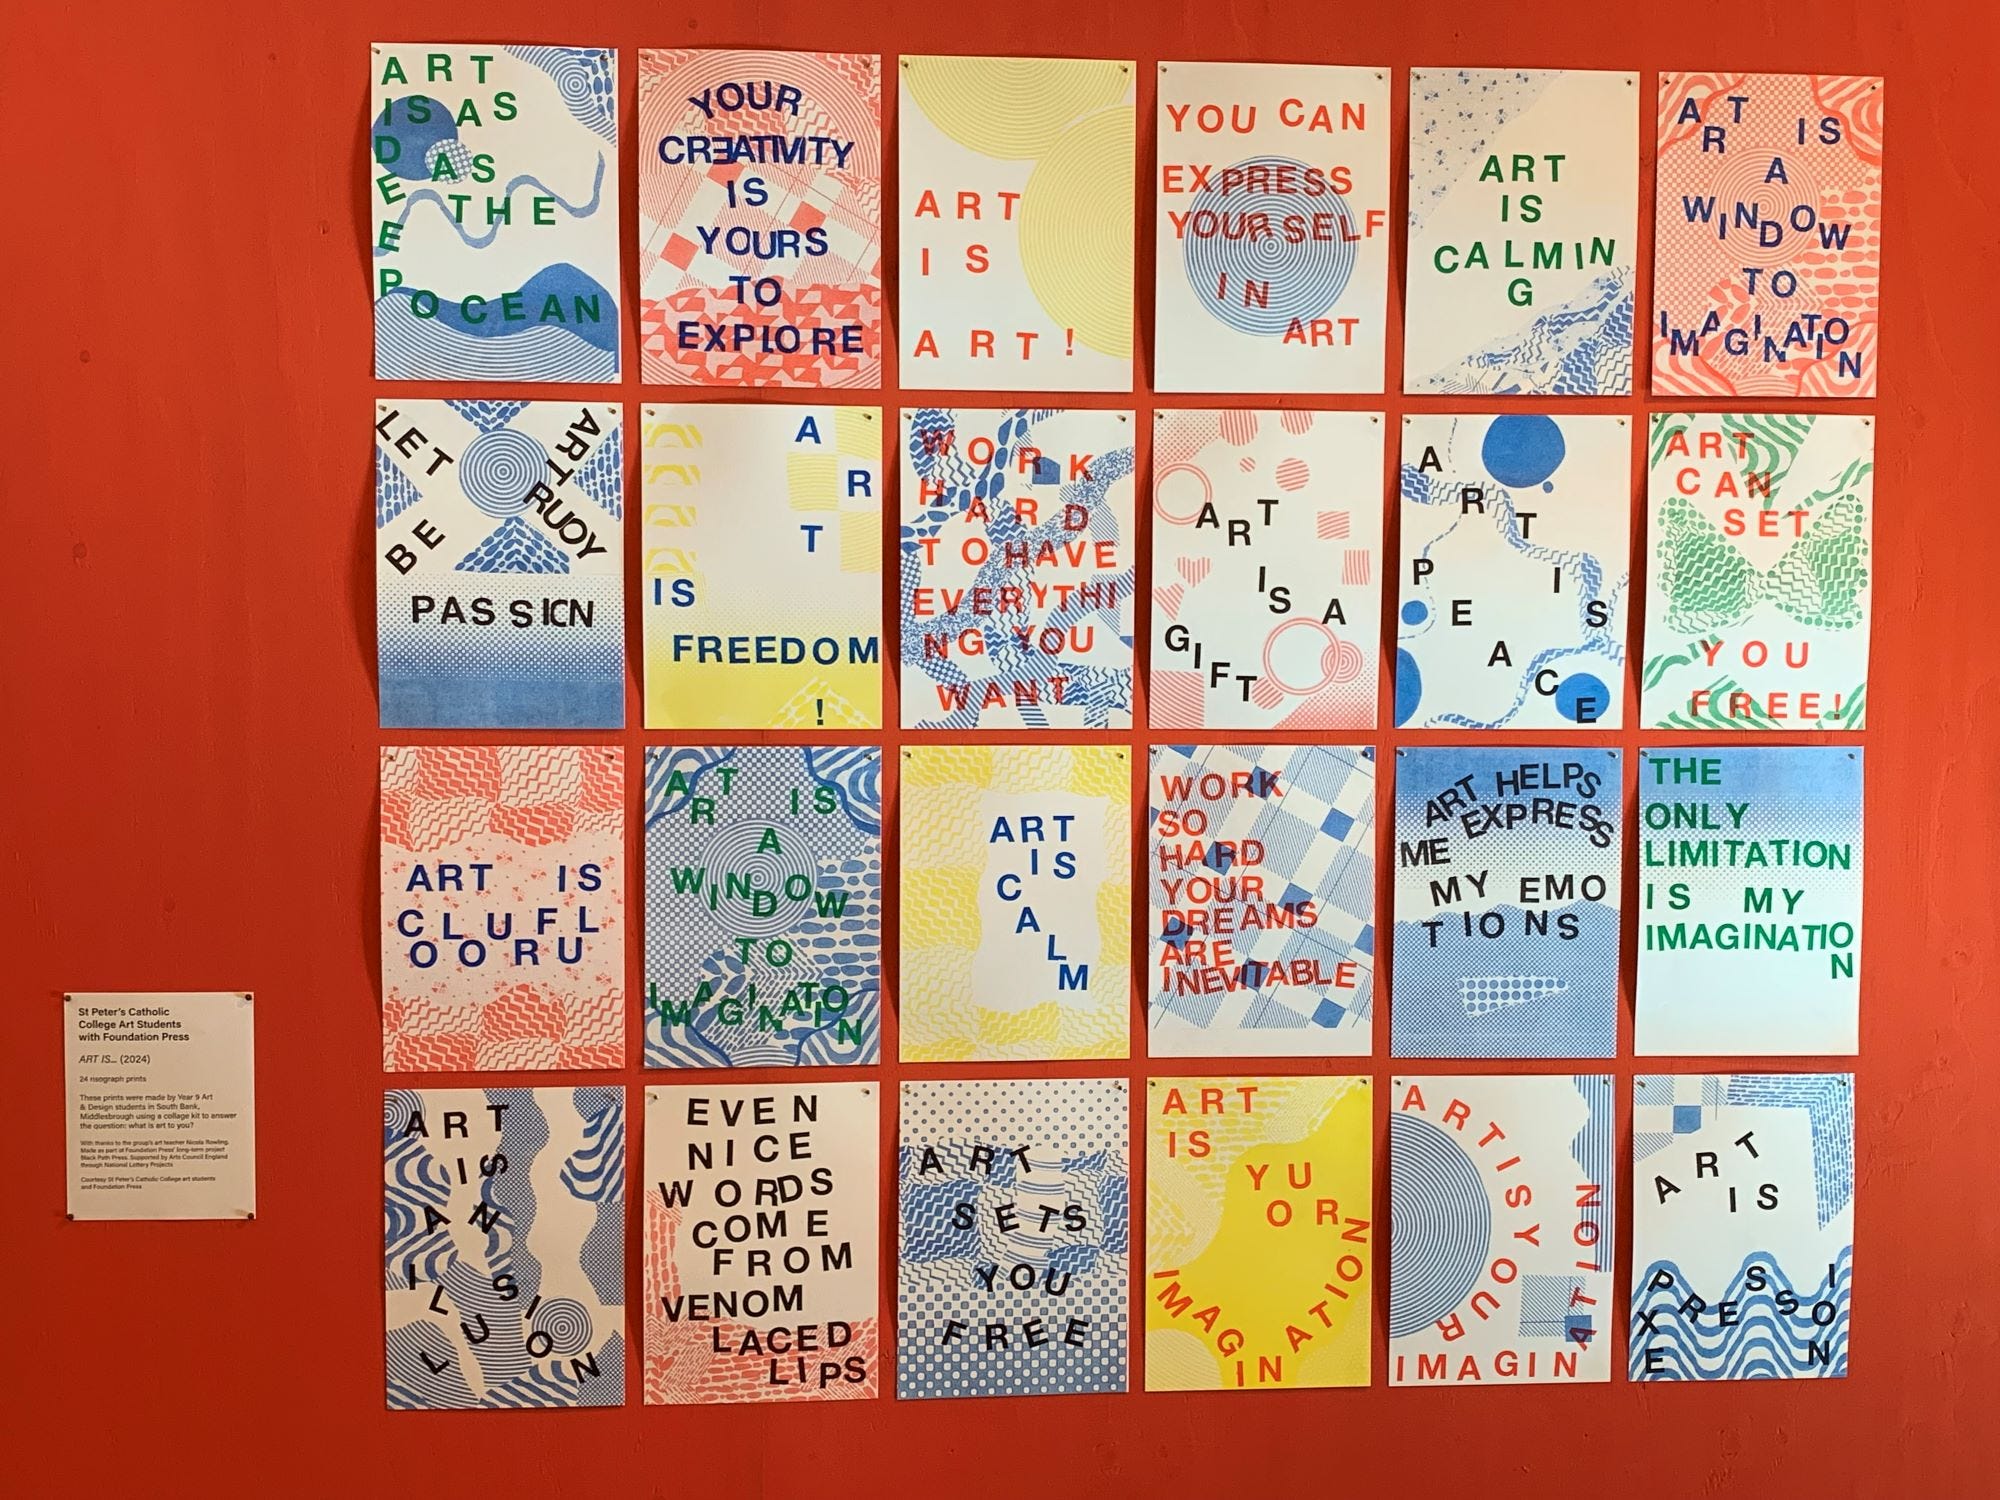 ART
IS AS
DEEP
AS
THE
OCEAN
YOUR
CREATIVITY
IS
YOURS
TO
EXPLORE
ART
IS
ART!
YOU CAN
EXPRESS
YOURSELF
IN
ART
ART
IS
CALMIN
G
ART IS
A
WINDOW
TO
IMAGINATION
LET
BE
ART
RUOY
PASSION
ART
IS
FREEDOM
!
WORK
HARD
TO HAVE
EVERYTHI
NG YOU
WANT
ART
IS A
GIFT
ART
IS
PEACE
ART
CAN
SET
YOU
FREE!
ART IS
CLUFL
OORU
ART IS
A
WINDOW
TO
IMAGINATION
ART
IS
CALM
WORK
SO
HARD
YOUR
DREAMS
ARE
INEVITABLE
ART HELPS
ME EXPRESS
MY EMO
TIONS
THE
ONLY
LIMITATION
IS MY
IMAGINATIO
N
ART
IS
AN
ILLUSION
EVEN
NICE
WORDS
COME
FROM
VENOM
LACED
LIPS
ART
SETS
YOU
FREE
ART
IS
YU
OR
IMAGINATION
ART IS YOUR
IMAGINATION
ART
IS
EXPRESSION
St Peter's Catholic
College Art Students
with Foundation Press
ART IS... (2024)
24 risograph prints
These prints were made by Year 9 Art
& Design students in South Bank,
Middlesbrough using a collage kit to answer
the question: what is art to you?
With thanks to the group's art teacher Nicola Rowling.
Made as part of Foundation Press' long-term project
Black Path Press. Supported by Arts Council England
through National Lottery Projects
Courtesy St Peter's Catholic College art students
and Foundation Press